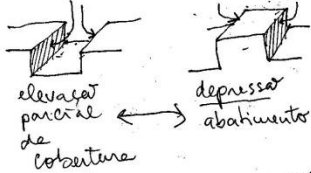 elevação
parcial
de
cobertura
depressão
abatimento